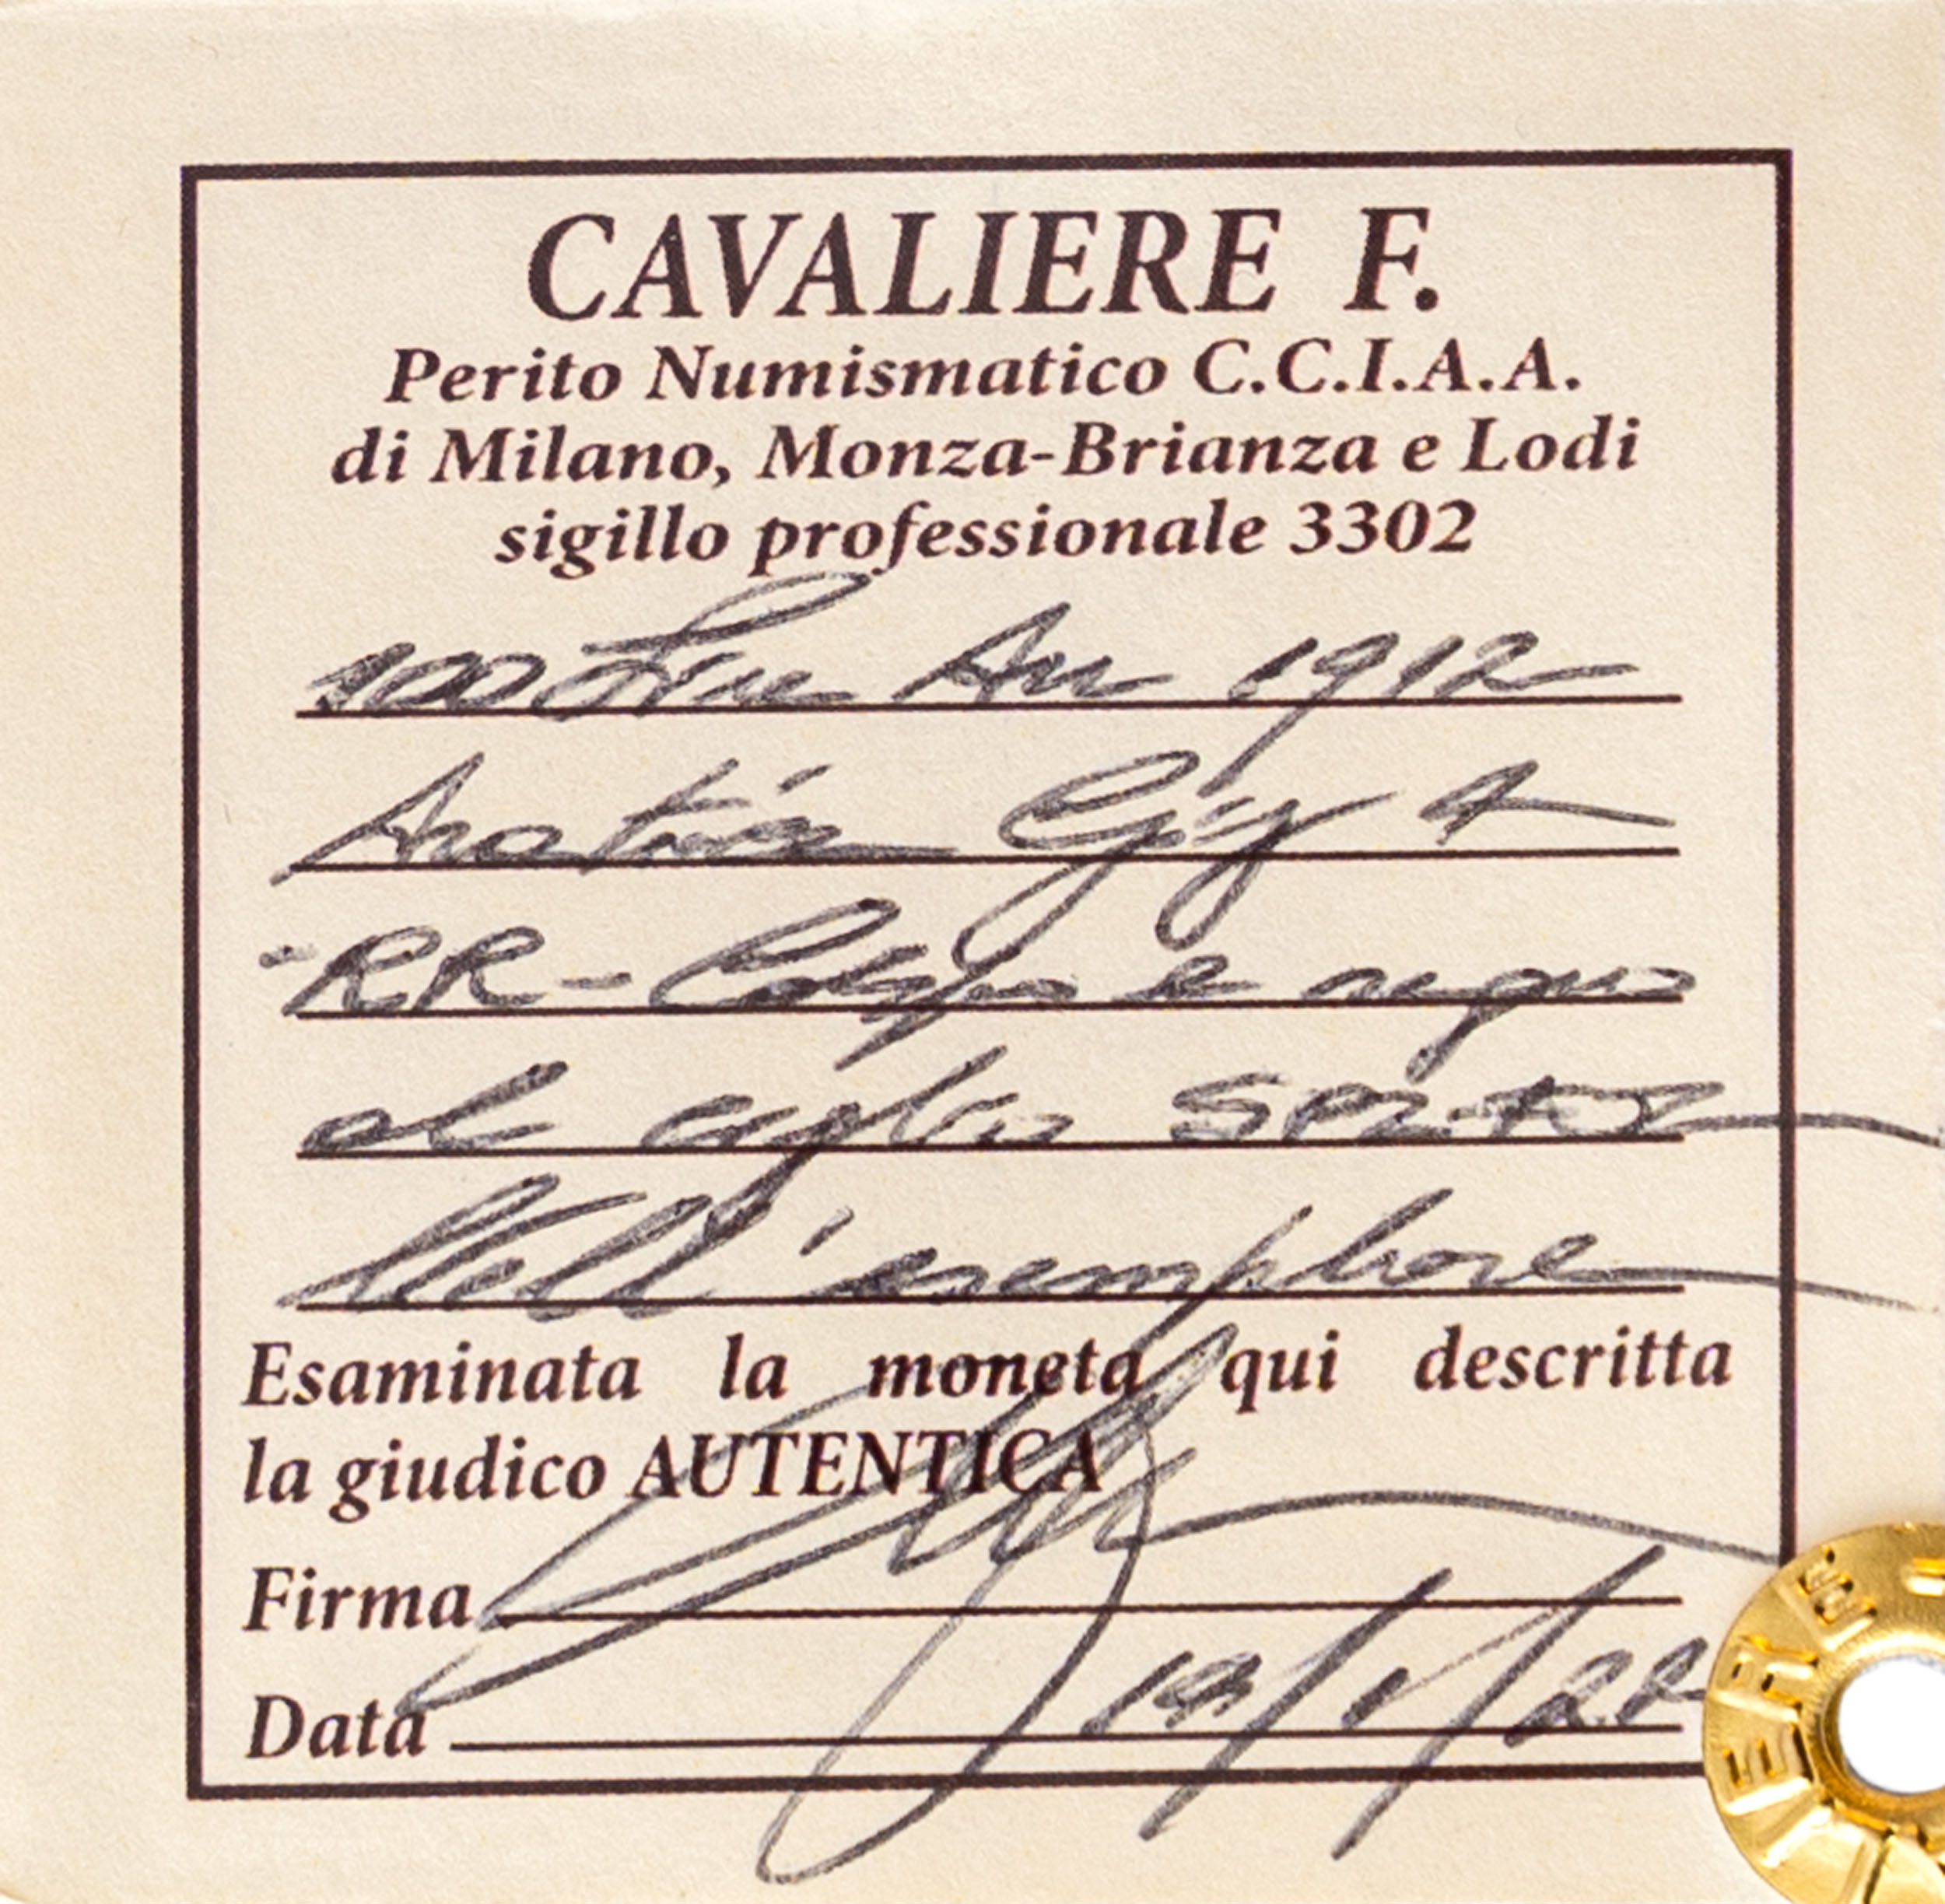 CAVALIERE F.
Perito Numismatico C.C.I.A.A.
di Milano, Monza-Brianza e Lodi
sigillo professionale 3302
100 Lire Au 1912
Aratrice Gig 4
-RR- Colpo a
di ciglio SPL
dell'esemplare
Esaminata la moneta qui descritta
la giudico AUTENTICA
Firma
Data